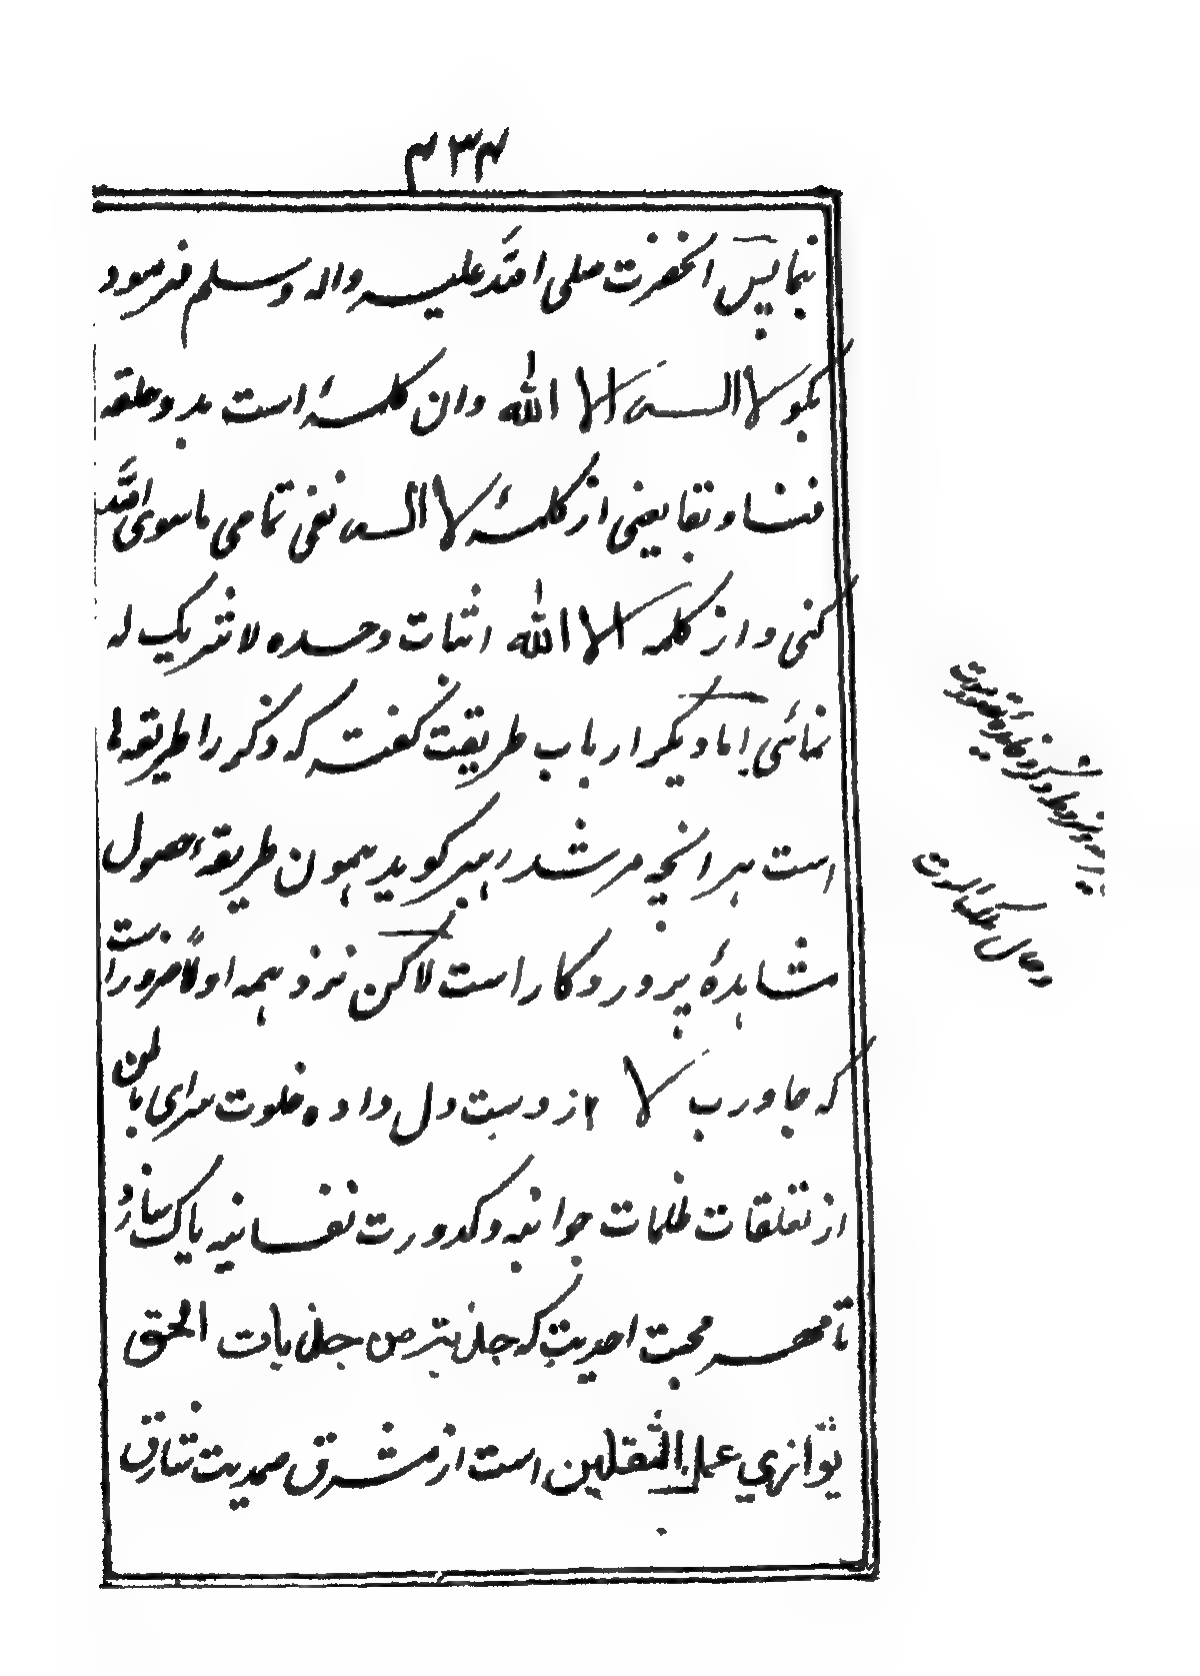 ۴۳۴
بنمایس آنحضرت صلی الله علیه واله وسلم فرمود
بگو لا اله الا الله وان کلمهٔ است مد و حلقه
فنا و بقا یعنی از کلمهٔ لا اله نفی تمامی ماسوی الله
کنی و از کلمه الا الله اثبات وحده لا شریک له
نمائی اما دیگر ارباب طریقت گفته که ذکر را طریقه ها
است هر انچه مرشد رهبر گوید همون طریقهٔ حصول
مشاهدهٔ پروردگار است لاکن نزد همه اولاً ضرور است
که جاورب لا از دست دل داده خلوت سرای باطن
از تعلقات ظلمات جوانبه و کدورت نفسانیه پاک سازد
تا مهر محبت احدیت که جذبتر من جذبات الحق
توازي عمل الثقلین است از مشرق صمدیت شارق